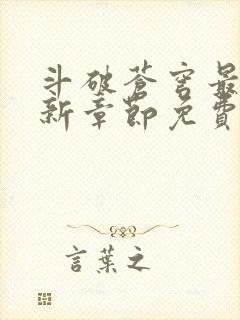 斗破苍穹最
新章節免費
言葉之